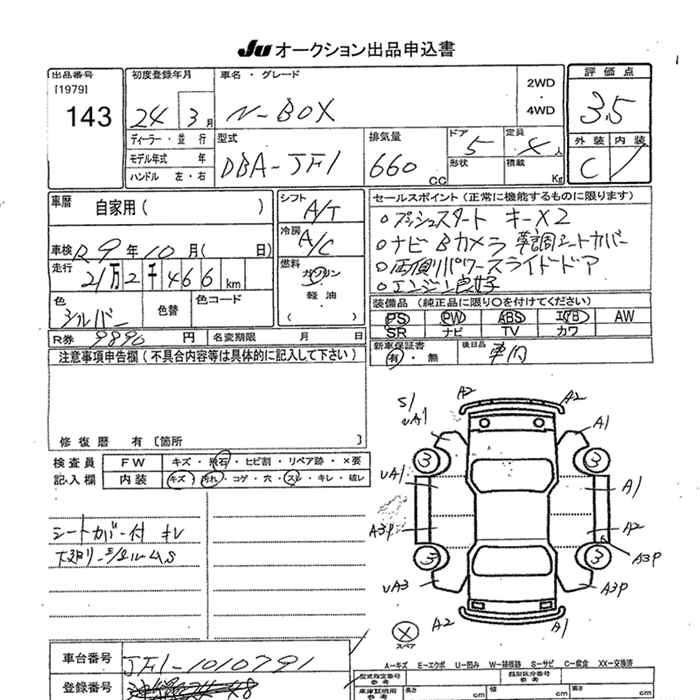 JU オークション出品申込書
出品番号 初度登録年月 車名・グレード 2WD・4WD 評価点
[1979]
143 24 3月 N-BOX 3.5
ディーラー・並行 型式 排気量 ドア 定員 外装 内装
モデル年式 年 DBA-JF1 660cc 5 4人 C
ハンドル 左・右 形状 積載 Kg
車歴 自家用( ) シフト A/T セールスポイント(正常に機能するものに限ります)
冷房 A/C ○プッシュスタート キーX2
車検 R9年10月( 日) ○ナビ Bカメラ 革調シートカバー
走行 21万2千466km 燃料 ガソリン ○両側パワースライドドア
軽油 ○エンジン良好
( )
色 シルバー 色替 色コード 装備品(純正品に限り○を付けてください)
PS PW ABS エアB AW
R券 9890円 名変期限 月 日 SR ナビ TV カワ
注意事項申告欄(不具合内容等は具体的に記入して下さい) 新車保証書 有・無 後日品 車内
修復歴 有[箇所 ]
検査員 FW キズ・飛石・ヒビ割・リペア跡・×要
記入欄 内装 キズ・汚れ・コゲ・穴・スレ・キレ・破レ
シートカバー付 キレ
A2 A2
S1
UA1 A1
3 3
UA1 A1
A3P A2
3 3 A3P
UA3 A3P
A2 A1
スペア
車台番号 JF1-1010791
A-キズ E-エクボ U-凹み W-補修跡 S-サビ C-腐食 XX-交換済
登録番号
型式指定番号 参考 類別区分番号 参考
車庫証明用 参考 長さ cm 幅 cm 高さ cm